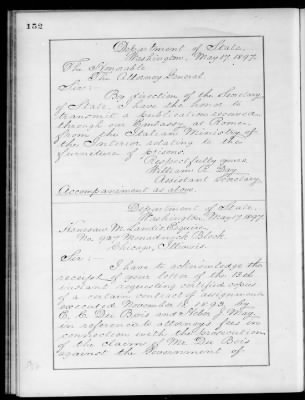 152
Department of State,
Washington, May 17, 1897.
The Honorable
The Attorney General
Sir:-
By direction of the Secretary
of State, I have the honor to
transmit a publication received
through our Embassy at Rome,
from the Italian Ministry of
the Interior relating to the
furniture of prisons.
Respectfully yours,
William R. Day
Assistant Secretary.
Accompaniment as above.
Department of State,
Washington, May 17, 1897.
Kenesaw M. Landis, Esquire,
No. 927 Monadnock Block
Chicago, Illinois.
Sir:-
I have to acknowledge the
receipt of your letter of the 13th
instant requesting certified copies
of a certain contract & assignment
executed November 8, 1893, by
E. C. Du Bois and Helen J. May
in reference to attorneys fees in
connection with the prosecution
of the claim of Mr. Du Bois
against the Government of